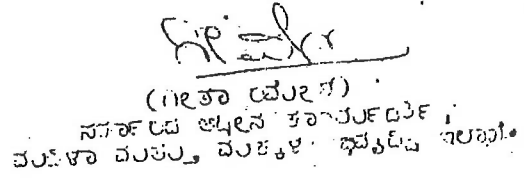 (ಗೀತಾ ಯಮುನ)
ಸರ್ಕಾರದ ಅಧೀನ ಕಾರ್ಯದರ್ಶಿ
ಮಹಿಳಾ ಮತ್ತು ಮಕ್ಕಳ ಅಭಿವೃದ್ಧಿ ಇಲಾಖೆ